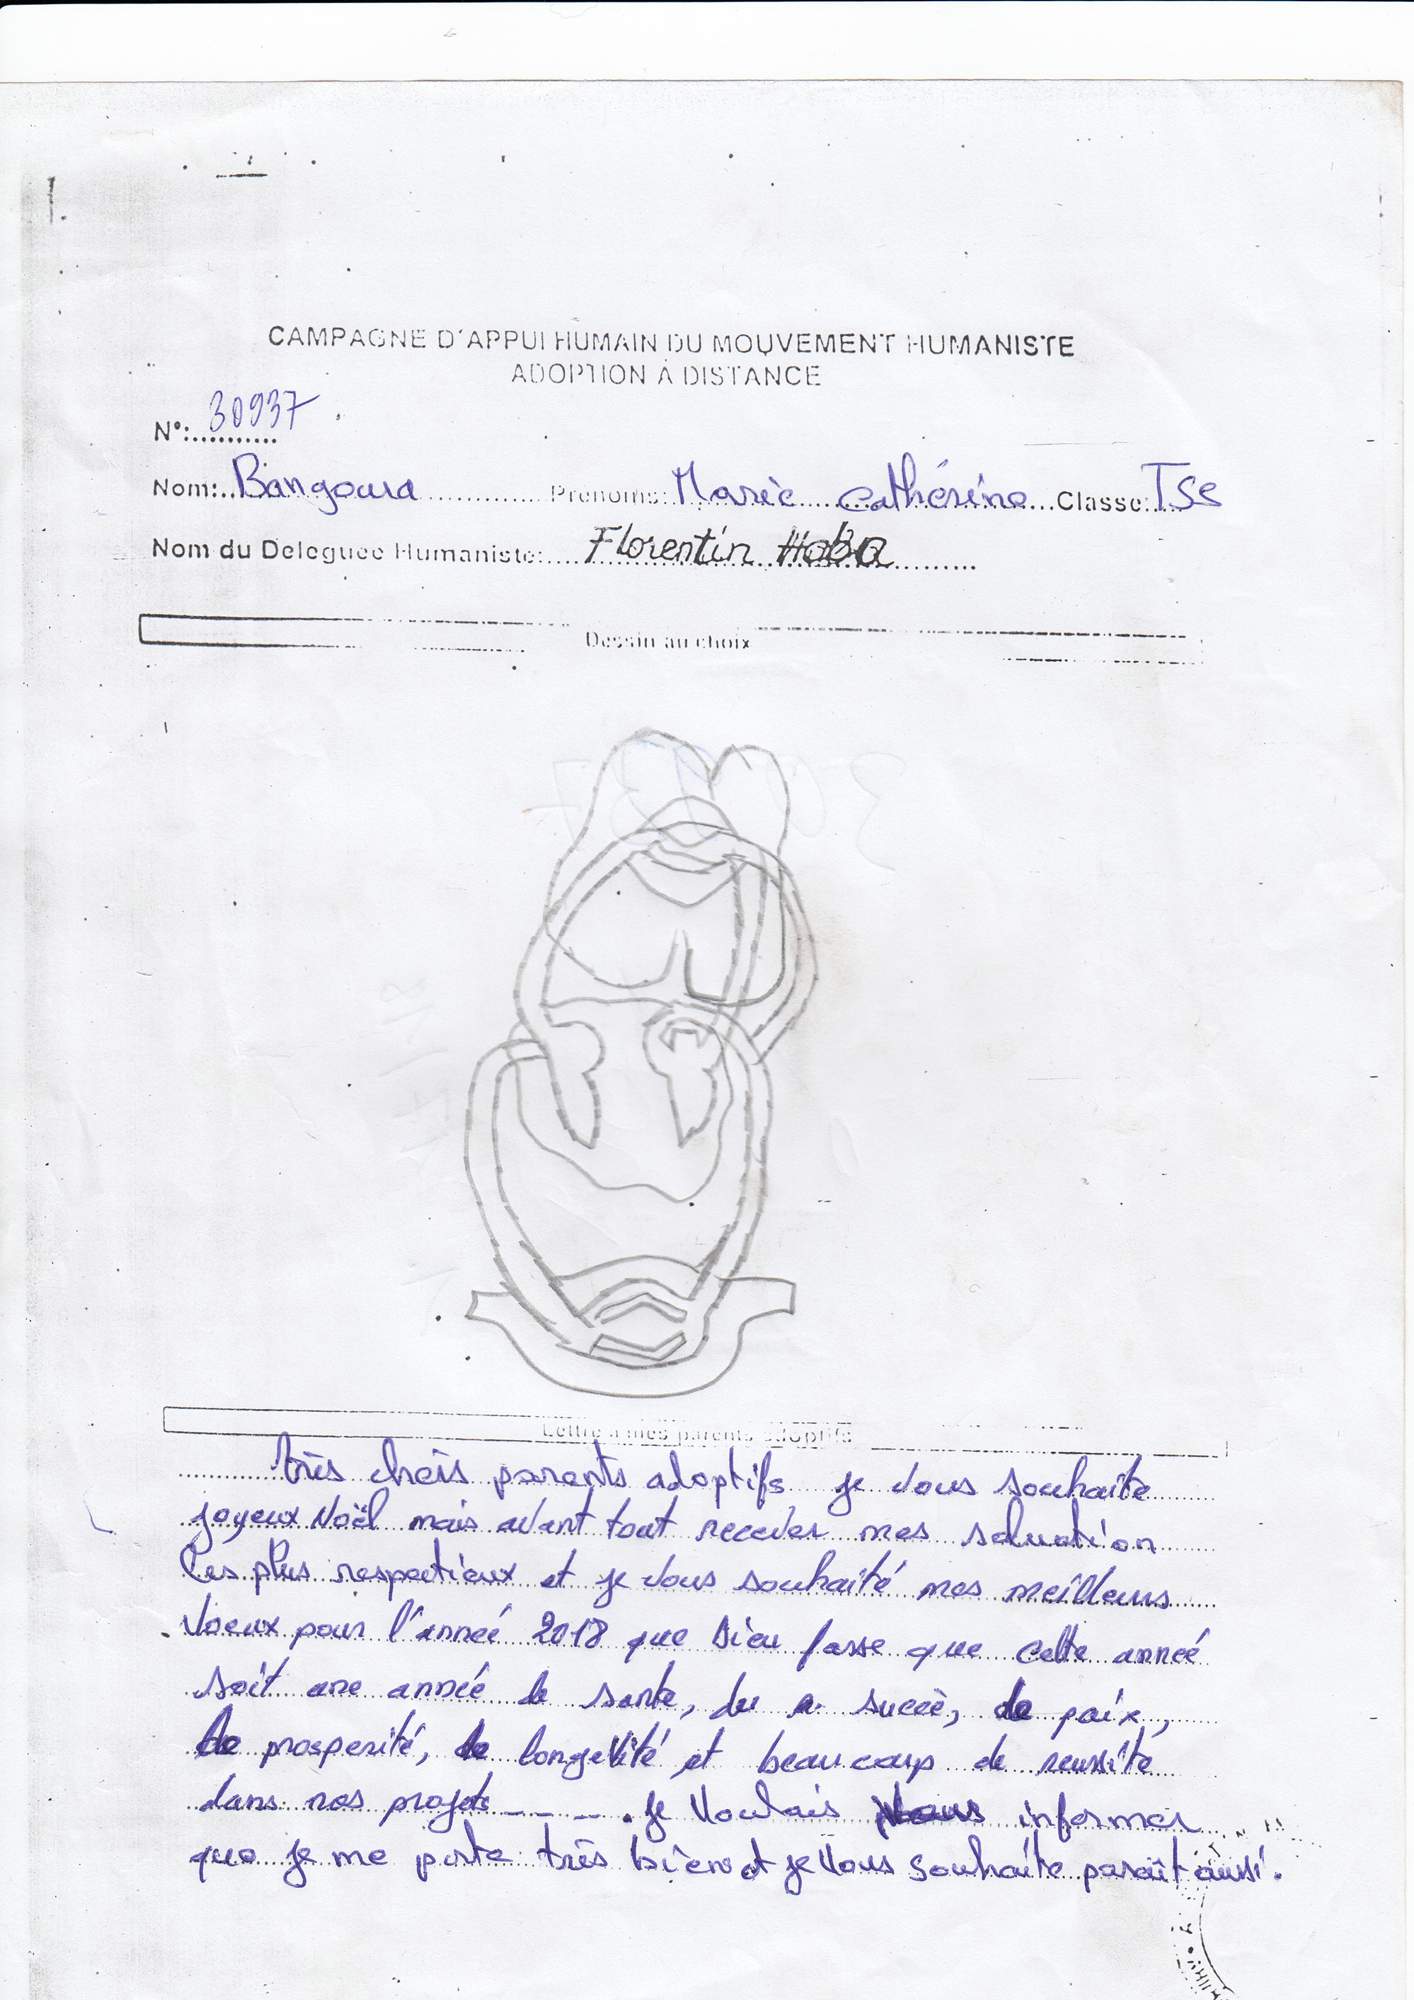 CAMPAGNE D'APPUI HUMAIN DU MOUVEMENT HUMANISTE
ADOPTION À DISTANCE
N°:........... 30937
Nom:.. Bangoura ............. Prenoms: Marie Cathérine ...Classe: TSS
Nom du Deleguee Humaniste:.... Florentin Haba .........
Dessin au choix
Lettre a mes parents adoptifs
très cheis parents adoptifs je vous souhaite
joyeux Noël mais avant tout recever mes saluation
les plus respectieux et je vous souhaité mes meilleurs
voeux pour l'année 2018 que Dieu fasse que cette année
soit une année de sante, du succè, de paix,
de prosperité, de longevité et beaucoup de reussite
dans nos projets _ _ _ . je voulais vous informer
que je me porte très bien et je vous souhaite pareit aussi.